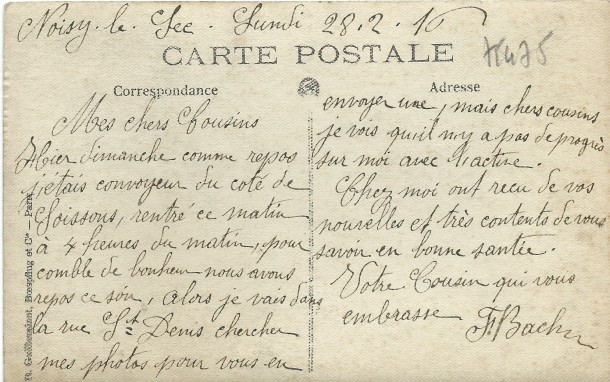 Noisy-le-Sec Lundi 28.2.16
CARTE POSTALE
Correspondance
Adresse
Mes chers Cousins
Hier dimanche comme repos
j'étais convoyeur du coté de
Soissons, rentré ce matin
à 4 heures du matin, pour
comble de bonheur nous avons
repos ce soir, alors je vais dans
la rue St Denis chercher
mes photos pour vous en
envoyer une, mais chers cousins
je vois qu'il n'y a pas de progrès
sur moi avec l'active.
Chez moi ont reçu de vos
nouvelles et très contents de vous
savoir en bonne santée.
Votre Cousin qui vous
embrasse